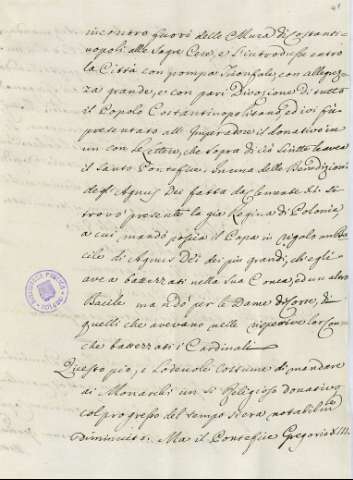 incontro fuori delle Mura di Costanti-
nopoli alle Sagre Cere, e l'introdusse entro
la Città con pompa Trionfale, con allegrez-
za grande, e con pari Divozione di tutto
il Popolo Costantinopolitano, ed ivi fu
presentato all' Imperadore il donativo in-
un con le Lettere, che sopra di ciò scritte le avea
il Santo Pontefice. In una delle Benedizioni
degl' Agnus Dei fatta da Clemente XI. si
trovò presente la già Regina di Polonia,
a cui mandò poscia il Papa in regalo un Ba-
cile di Agnus Dei dei più grandi, ch' egli
avea battezzati nella sua Conca, ed un altro
Bacile mandò per le Dame di Corte, di
quelli che avevano nelle rispettive lor Con-
che battezzati i Cardinali
Questo pio, e lodevole costume di mandare
ai Monarchi un sì Religioso donativo
col progresso del tempo si era notabilm.
diminuito. Ma il Pontefice Gregorio XIII.
BIBLIOTECA PUBLICA
TOLEDO